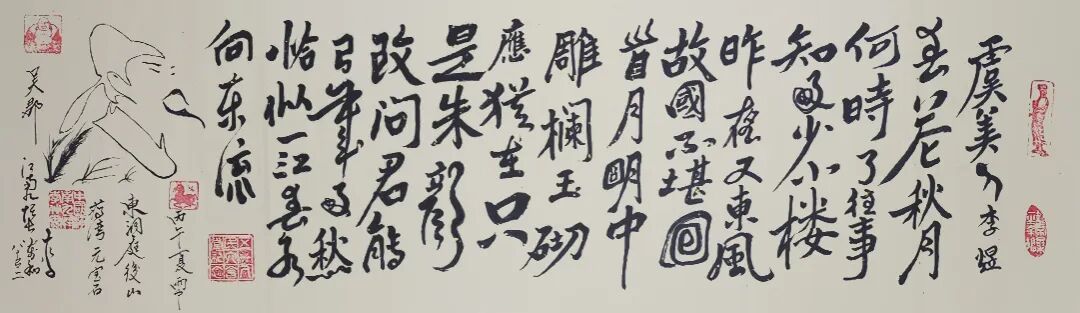 虞美人 李煜
春花秋月
何時了往事
知多少小楼
昨夜又東風
故國不堪回
首月明中
雕欄玉砌
應猶在只
是朱顔
改问君能
有幾多愁
恰似一江春水
向東流
丙午夏雨中
東洞庭後山
吴郡